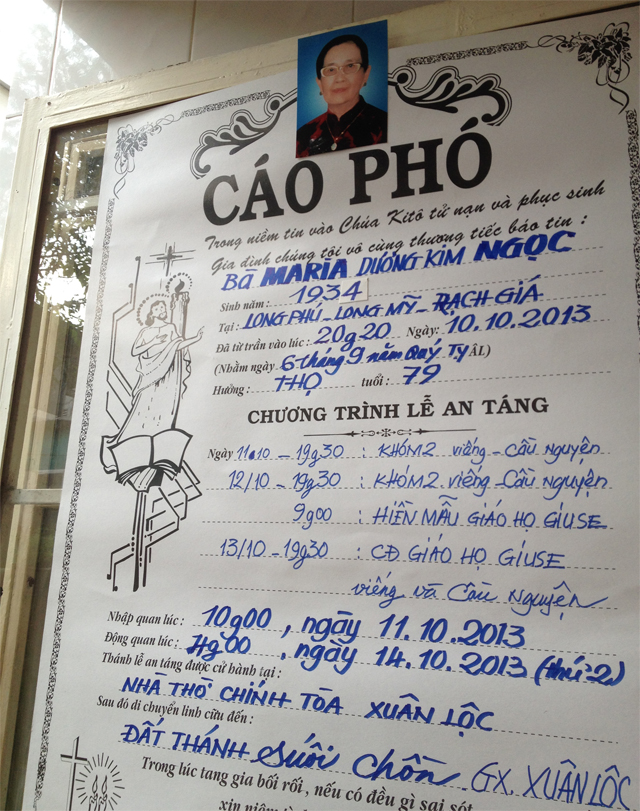 CÁO PHÓ
Trong niềm tin vào Chúa Kitô tử nạn và phục sinh
Gia đình chúng tôi vô cùng thương tiếc báo tin :
Bà MARIA DƯƠNG KIM NGỌC
Sinh năm : 1934
Tại : LONG PHÚ - LONG MỸ - RẠCH GIÁ
Đã từ trần vào lúc : 20g20 Ngày: 10.10.2013
(Nhằm ngày 6 tháng 9 năm Quý Tỵ ÂL)
Hưởng : THỌ tuổi : 79
CHƯƠNG TRÌNH LỄ AN TÁNG
Ngày 11.10 - 19g30 : KHÓM2 viếng - Cầu Nguyện
12/10 - 19g30 : KHÓM2 viếng - Cầu Nguyện
9g00 : HIỀN MẪU GIÁO HỌ GIUSE
13/10 - 19g30 : CĐ GIÁO HỌ GIUSE
viếng và Cầu Nguyện
Nhập quan lúc : 10g00, ngày 11.10.2013
Động quan lúc : 4g00, ngày 14.10.2013 (thứ 2)
Thánh lễ an táng được cử hành tại :
NHÀ THỜ CHÍNH TÒA XUÂN LỘC
Sau đó di chuyển linh cữu đến :
ĐẤT THÁNH Suối Chồn GX. XUÂN LỘC
Trong lúc tang gia bối rối, nếu có đều gì sai sót
xin niệm